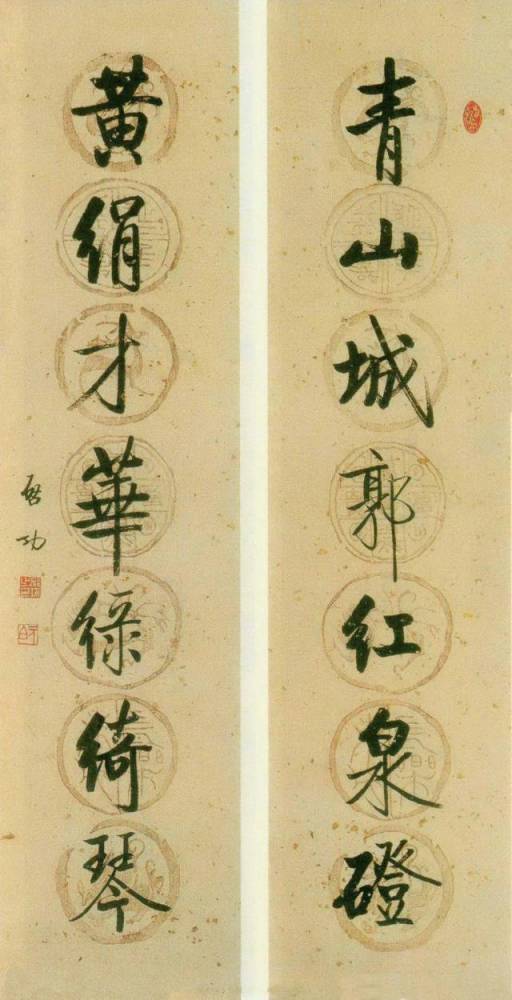 青山城郭紅泉磴
黃絹才華綠綺琴
啟功